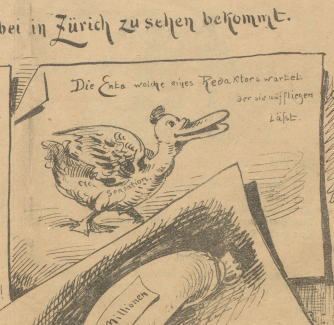 bei in Zürich zu sehen bekommt.
Die Ente welche eines Redaktors wartet
der sie auffliegen
läßt.
Sensation
Millionen